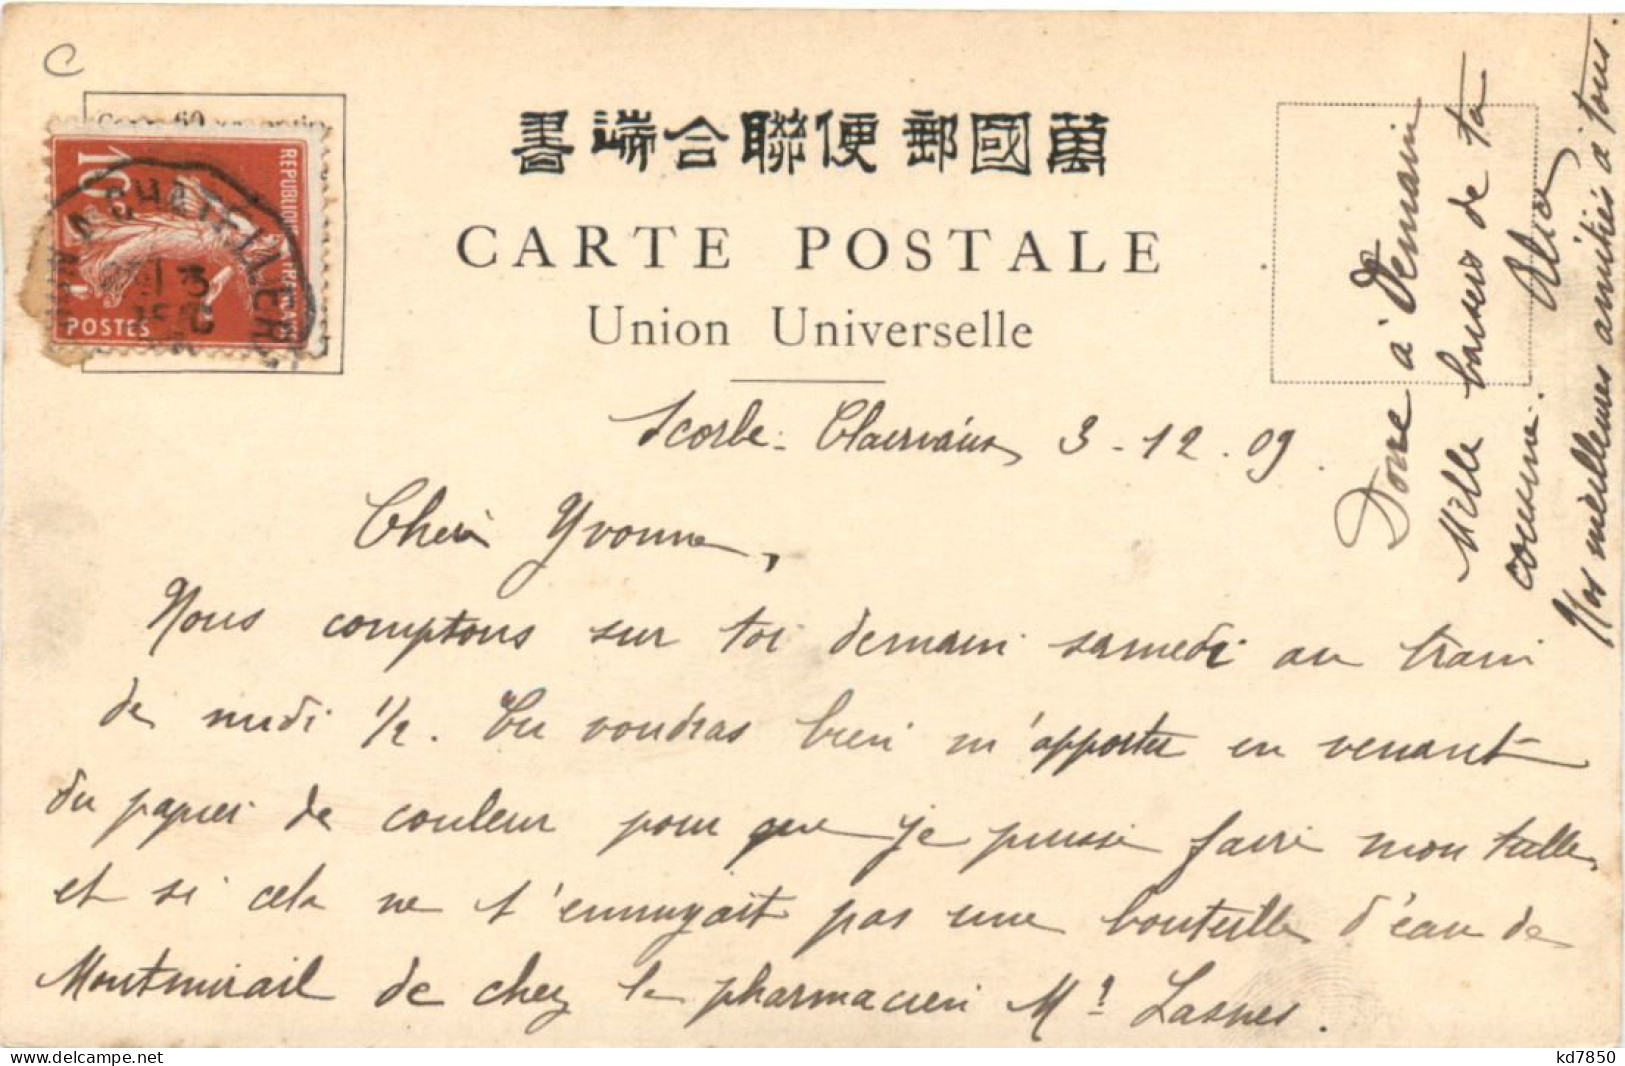 C
60
10c
REPUBLIQUE FRANÇAISE
POSTES
A CHATELLER
3
書端合聯便郵國萬
CARTE POSTALE
Union Universelle
Scorbé-Clairvaux 3-12.09.
Chère Yvonne,
Nous comptons sur toi demain samedi au train
de midi 1/2. Tu voudras bien m'apporter en venant
du papier de couleur pour que je puisse faire mon tulle,
et si cela ne t'ennuyait pas une bouteille d'eau de
Montmirail de chez le pharmacien Mr Lasnes.
Donc à Demain
Mille baisers de ta
cousine. Alice
Nos meilleures amitiés à tous.
kd7850